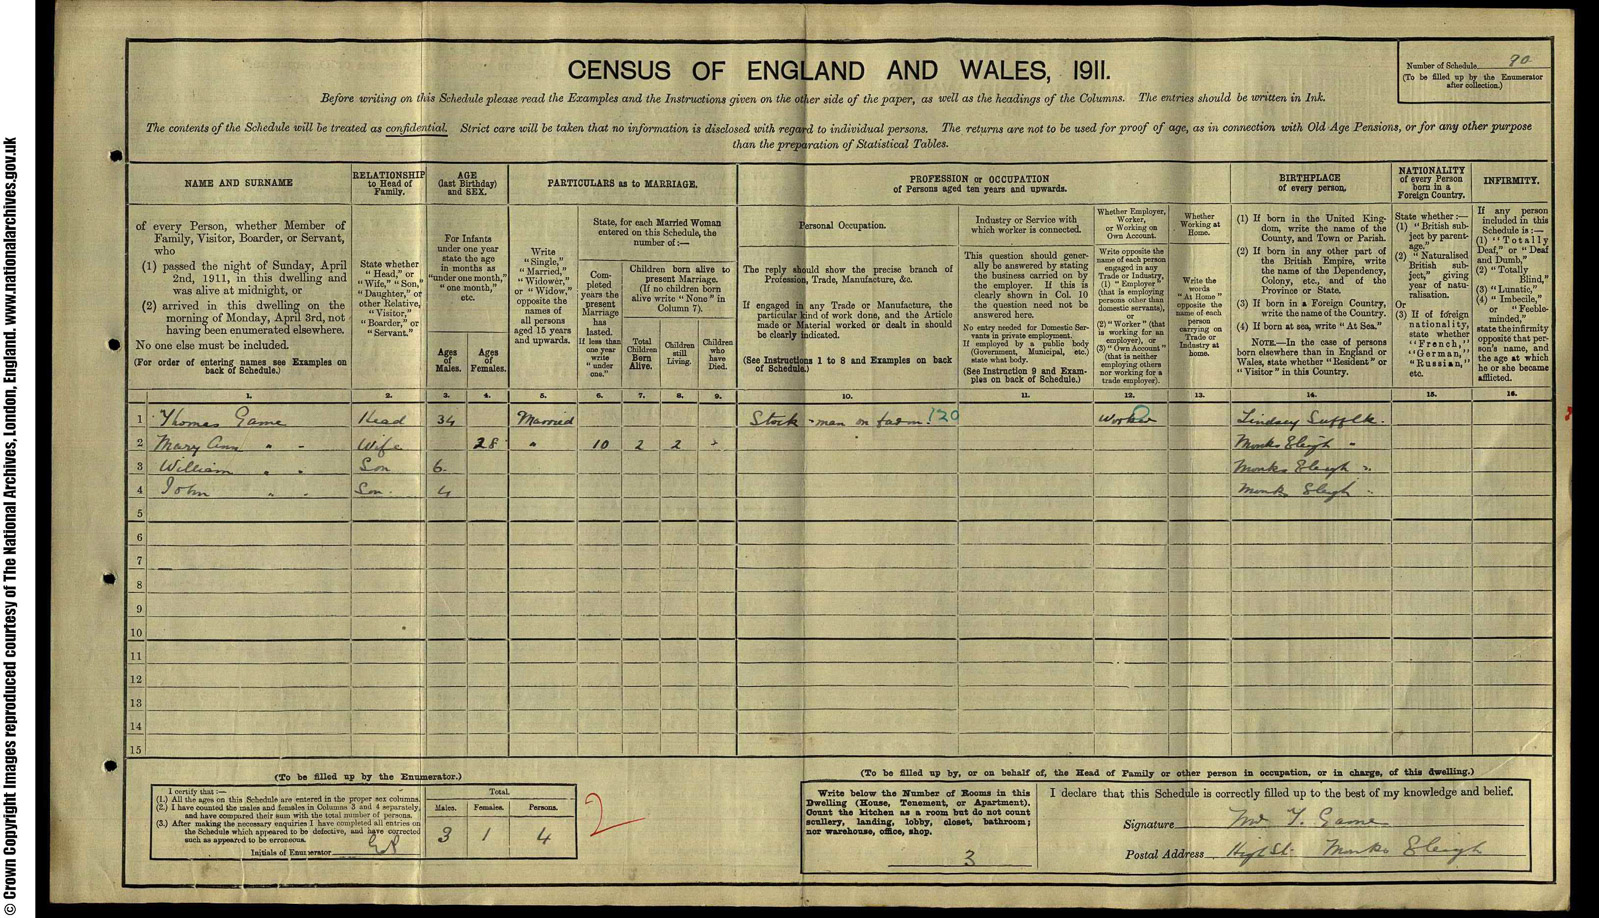 © Crown Copyright Images reproduced courtesy of The National Archives, London, England. www.nationalarchives.gov.uk
CENSUS OF ENGLAND AND WALES, 1911.
Number of Schedule 90
(To be filled up by the Enumerator
after collection.)
Before writing on this Schedule please read the Examples and the Instructions given on the other side of the paper, as well as the headings of the Columns. The entries should be written in Ink.
The contents of the Schedule will be treated as confidential. Strict care will be taken that no information is disclosed with regard to individual persons. The returns are not to be used for proof of age, as in connection with Old Age Pensions, or for any other purpose
than the preparation of Statistical Tables.
NAME AND SURNAME
of every Person, whether Member of
Family, Visitor, Boarder, or Servant,
who
(1) passed the night of Sunday, April
2nd, 1911, in this dwelling and
was alive at midnight, or
(2) arrived in this dwelling on the
morning of Monday, April 3rd, not
having been enumerated elsewhere.
No one else must be included.
(For order of entering names see Examples on
back of Schedule.)
RELATIONSHIP
to Head of
Family.
State whether
"Head," or
"Wife," "Son,"
"Daughter," or
other Relative,
"Visitor,"
"Boarder," or
"Servant."
AGE
(last Birthday)
and SEX.
For Infants
under one year
state the age
in months as
"under one month,"
"one month,"
etc.
Ages
of
Males.
Ages
of
Females.
PARTICULARS as to MARRIAGE.
Write
"Single,"
"Married,"
"Widower,"
or "Widow,"
opposite the
names of
all persons
aged 15 years
and upwards.
State, for each Married Woman
entered on this Schedule, the
number of:—
Com-
pleted
years the
present
Marriage
has
lasted.
If less than
one year
write
"under
one."
Children born alive to
present Marriage.
(If no children born
alive write "None" in
Column 7).
Total
Children
Born
Alive.
Children
still
Living.
Children
who
have
Died.
PROFESSION or OCCUPATION
of Persons aged ten years and upwards.
Personal Occupation.
The reply should show the precise branch of
Profession, Trade, Manufacture, &c.
If engaged in any Trade or Manufacture, the
particular kind of work done, and the Article
made or Material worked or dealt in should
be clearly indicated.
(See Instructions 1 to 8 and Examples on back
of Schedule.)
Industry or Service with
which worker is connected.
This question should gener-
ally be answered by stating
the business carried on by
the employer. If this is
clearly shown in Col. 10
the question need not be
answered here.
No entry needed for Domestic Ser-
vants in private employment.
If employed by a public body
(Government, Municipal, etc.)
state what body.
(See Instruction 9 and Exam-
ples on back of Schedule.)
Whether Employer,
Worker,
or Working on
Own Account.
Write opposite the
name of each person
engaged in any
Trade or Industry,
(1) "Employer"
(that is employing
persons other than
domestic servants),
or
(2) "Worker" (that
is working for an
employer), or
(3) "Own Account"
(that is neither
employing others
nor working for a
trade employer).
Whether
Working at
Home.
Write the
words
"At Home"
opposite the
name of each
person
carrying on
Trade or
Industry at
home.
BIRTHPLACE
of every person.
(1) If born in the United King-
dom, write the name of the
County, and Town or Parish.
(2) If born in any other part of
the British Empire, write
the name of the Dependency,
Colony, etc., and of the
Province or State.
(3) If born in a Foreign Country,
write the name of the Country.
(4) If born at sea, write "At Sea."
NOTE.—In the case of persons
born elsewhere than in England or
Wales, state whether "Resident" or
"Visitor" in this Country.
NATIONALITY
of every Person
born in a
Foreign Country.
State whether:—
(1) "British sub-
ject by parent-
age,"
(2) "Naturalised
British sub-
ject," giving
year of natu-
ralisation.
Or
(3) If of foreign
nationality,
state whether
"French,"
"German,"
"Russian,"
etc.
INFIRMITY.
If any person
included in this
Schedule is:—
(1) "Totally
Deaf," or "Deaf
and Dumb,"
(2) "Totally
Blind,"
(3) "Lunatic,"
(4) "Imbecile,"
or "Feeble-
minded,"
state the infirmity
opposite that per-
son's name, and
the age at which
he or she became
afflicted.
1. 2. 3. 4. 5. 6. 7. 8. 9. 10. 11. 12. 13. 14. 15. 16.
1 Thomas Game Head 34 Married Stock-man on farm 120 Worker Lindsey Suffolk.
2 Mary Ann " " Wife 28 " 10 2 2 Monks Eleigh "
3 William " " Son 6 Monks Eleigh "
4 John " " Son 4 Monks Eleigh "
5
6
7
8
9
10
11
12
13
14
15
(To be filled up by the Enumerator.)
I certify that:—
(1.) All the ages on this Schedule are entered in the proper sex columns.
(2.) I have counted the males and females in Columns 3 and 4 separately,
and have compared their sum with the total number of persons.
(3.) After making the necessary enquiries I have completed all entries on
the Schedule which appeared to be defective, and have corrected
such as appeared to be erroneous.
Initials of Enumerator
Total.
Males. Females. Persons.
3 1 4
2
(To be filled up by, or on behalf of, the Head of Family or other person in occupation, or in charge, of this dwelling.)
Write below the Number of Rooms in this
Dwelling (House, Tenement, or Apartment).
Count the kitchen as a room but do not count
scullery, landing, lobby, closet, bathroom;
nor warehouse, office, shop.
3
I declare that this Schedule is correctly filled up to the best of my knowledge and belief.
Signature Mr T. Game
Postal Address High St. Monks Eleigh